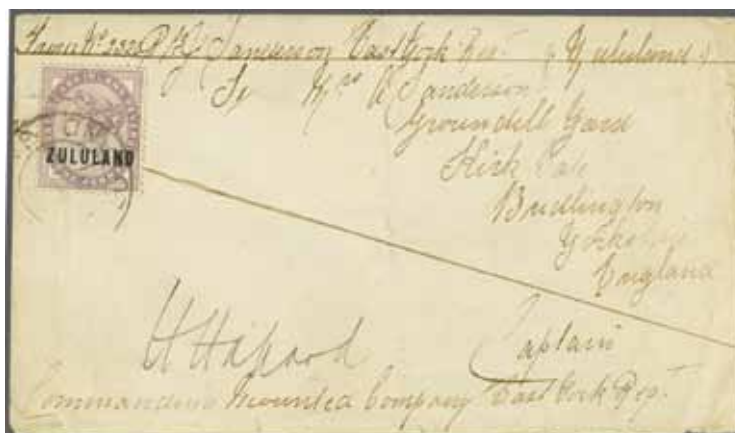 From No 2325 Pte J Sanderson East York Regt (Zululand)
ZULULAND
To Mrs A Sanderson
Groundell Yard
Kirk
Bridlington
Yorkshire
England
Captain
Commanding Mounted Company East York Regt